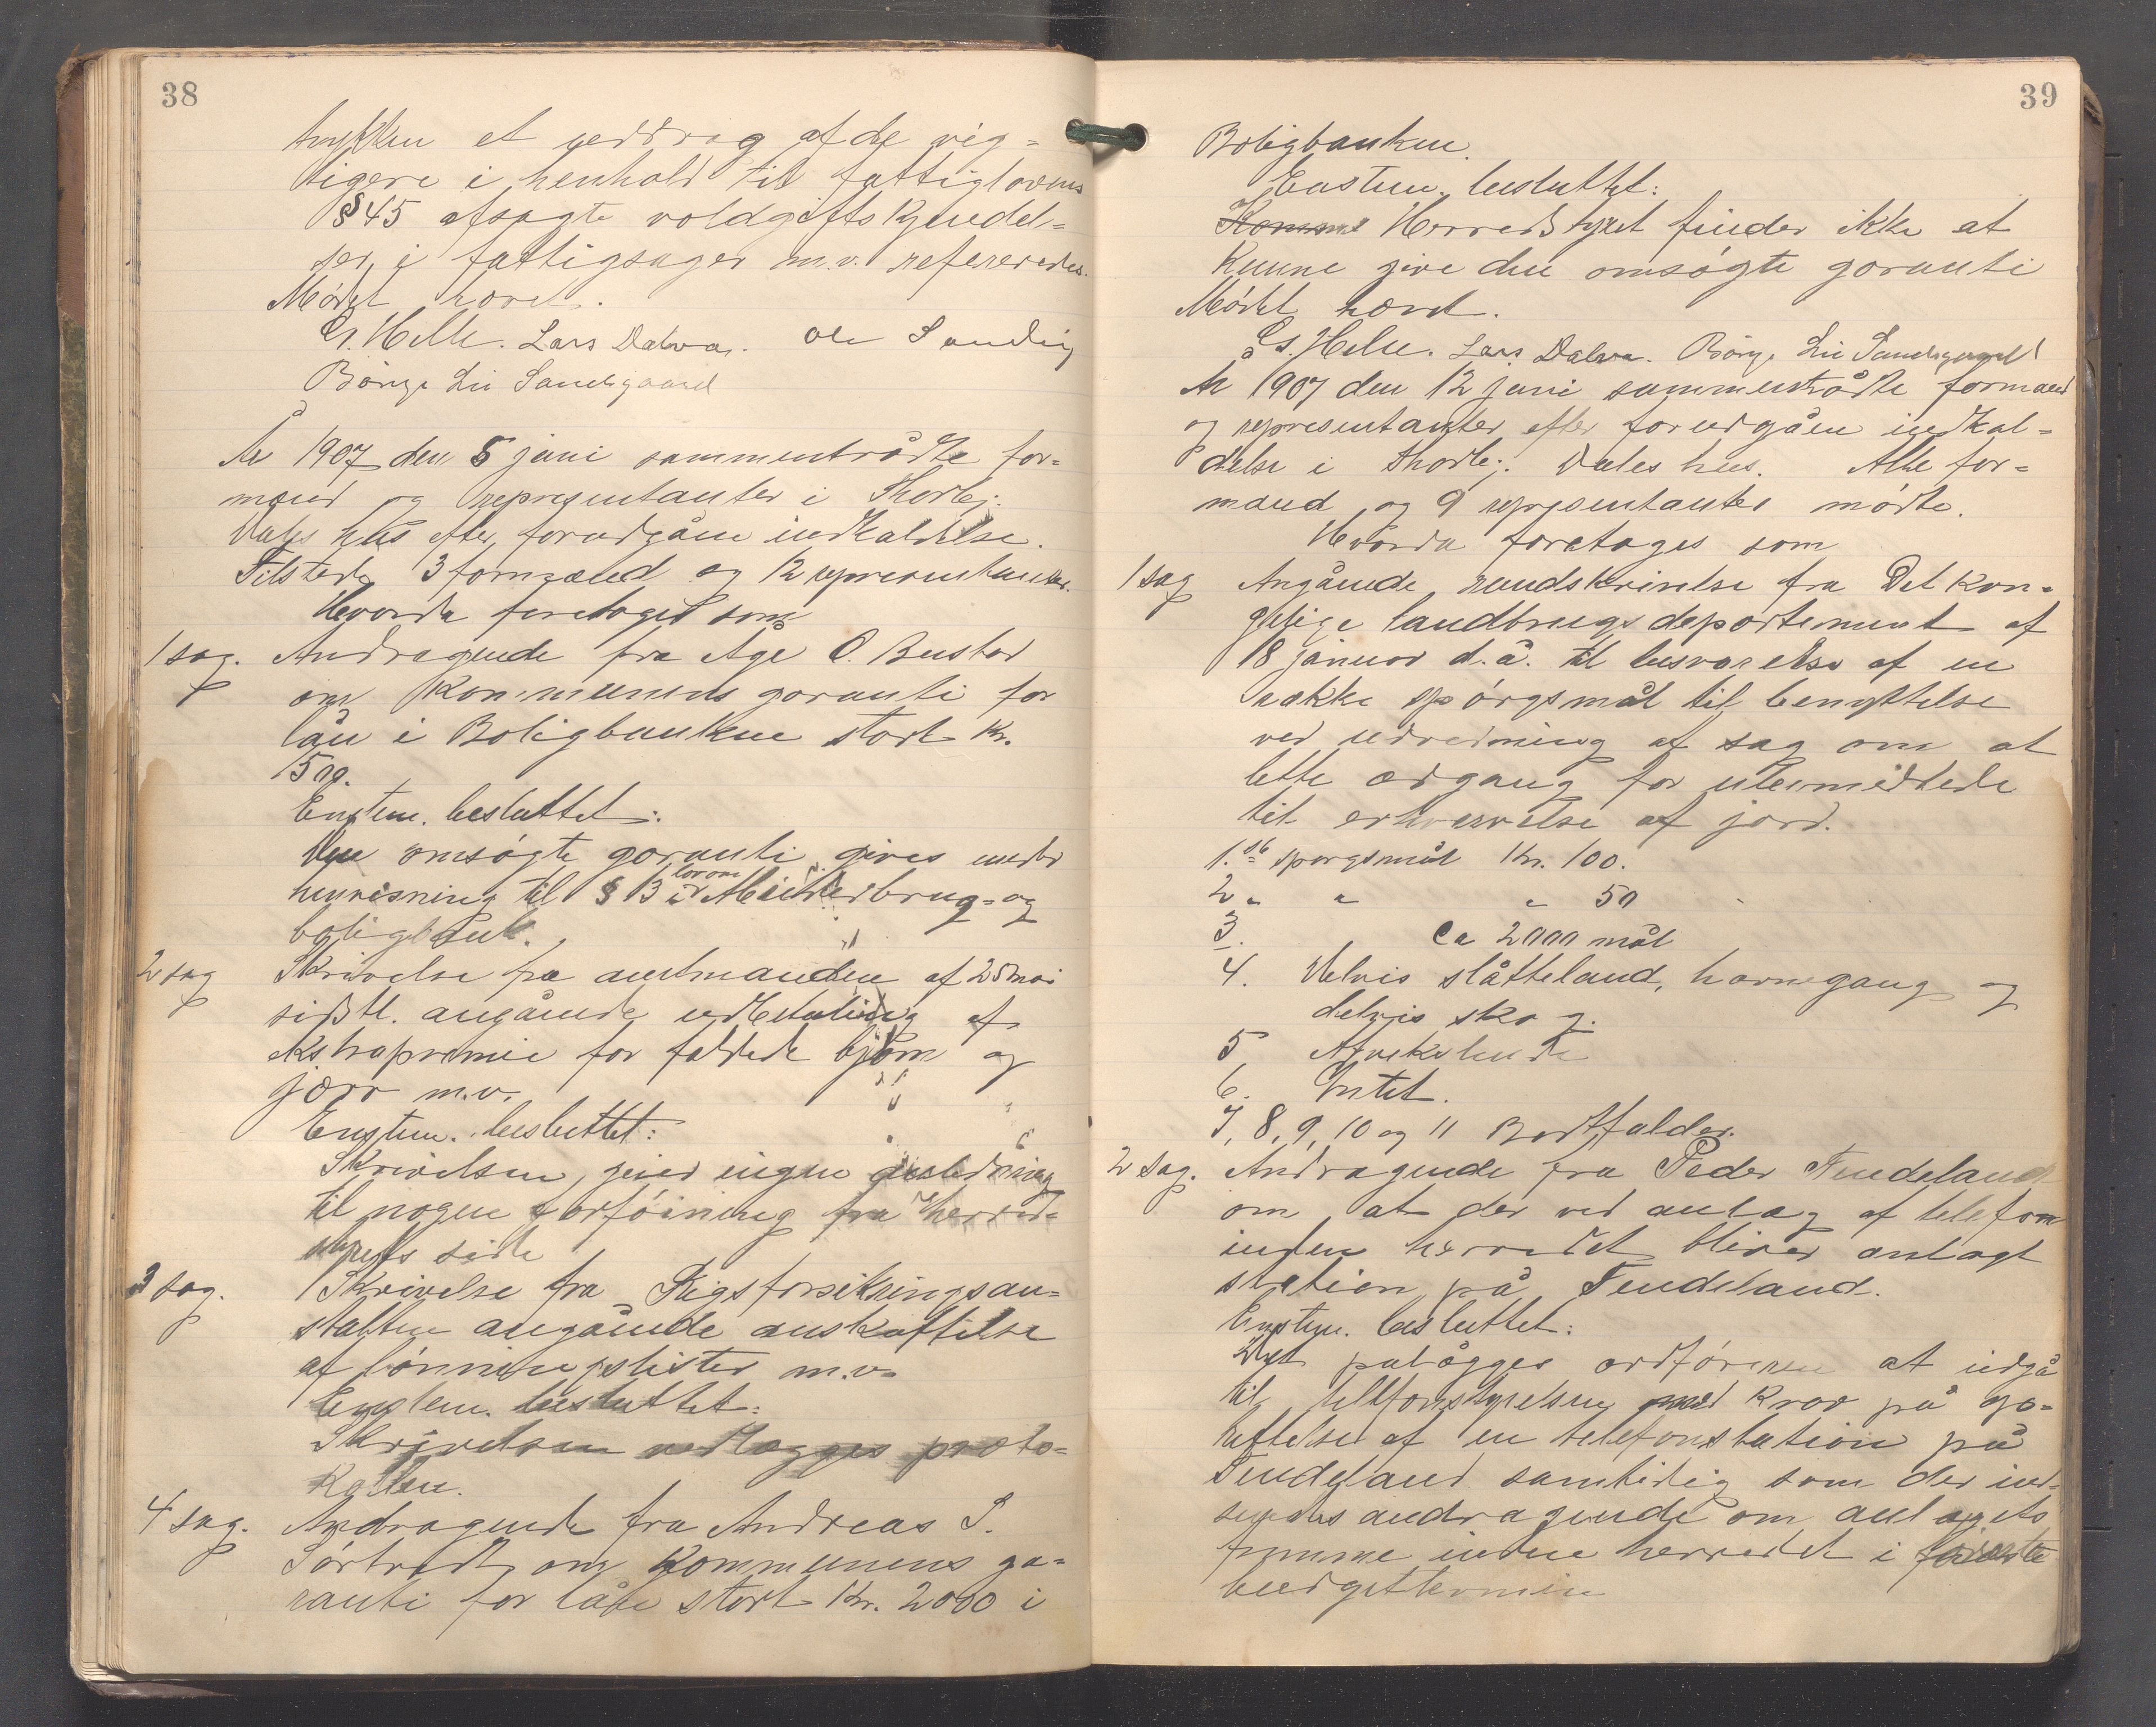 38
trykken et uddrag af de vig-
tigere i henhold til fattiglovens
§ 45 afsagte voldgiftskjendel-
ser i fattigsager m.v. refereredes.
Mødet hævet.
G. Helle. Lars Dalva. Ole Sandvig
Börge Lie Sandsgaard
År 1907 den 5 juni sammentrådte for-
mænd og repræsentanter i Thorbj.
Dales hus efter forudgåen indkaldelse.
Tilstede 3 formænd og 12 repræsentanter.
Hvorda foretoges som
1 sag. Andragende fra Åge O. Bustad
om kommunens garanti for
lån i Boligbanken stort kr.
500.
Enstem. besluttet:
Den omsøgte garanti gives under
henvisning til § 13 i lov om Mindrebrug- og
boligbank.
2 sag Skrivelse fra amtmanden af 25 mai
sidstl. angående udbetaling af
ekstrapræmie for fældede bjørn og
jærv m.v.
Enstem. besluttet:
Skrivelsen giver ingen anledning
til nogen forføining fra herreds-
styrets side
3 sag. Skrivelse fra Rigsforsikringsan-
stalten angående anskaffelse
af lønningslister m.v.
Enstem. besluttet:
Skrivelsen vedlægges proto-
kollen.
4 sag. Andragende fra Andreas S.
Sørtredt om kommunens ga-
ranti for lån stort kr. 2000 i
39
Boligbanken.
Enstem. besluttet:
Komm Herredstyret finder ikke at
kunne give den omsøgte garanti
Mødet hævet.
G. Helle. Lars Dalva. Börge Lie Sandsgaard
År 1907 den 12 juni sammentrådte formænd
og repræsentanter efter forudgåen indkal-
delse i Thorbj. Dales hus. Alle for-
mænd og 9 repræsentanter mødte.
Hvorda foretoges som
1 sag Angående rundskrivelse fra Det kon-
gelige landbrugsdepartement af
18 januar d.å. til besvarelse af en
række spørgsmål til benyttelse
ved udredning af sag om at
lette adgang for ubemidlede
til erhvervelse af jord.
1.ste spørgsmål Kr. 100.
2 " " " 50
3. Ca 2000 mål
4. Delvis slåtteland, havnegang og
delvis skog.
5 Afvekslende
6. Intet.
7, 8, 9, 10 og 11 Bortfalder.
2 sag. Andragende fra Peder Tendeland
om at der ved anlæg af telefon
inden herredet bliver anlagt
station på Tendeland.
Enstem. besluttet:
Det pålægges ordføreren at indgå
til telefonstyrelsen med krav på op-
rettelse af en telefonstation på
Tendeland samtidig som der ind-
sendes andragende om anlægets
fremme inden herredet i første
budgettermin